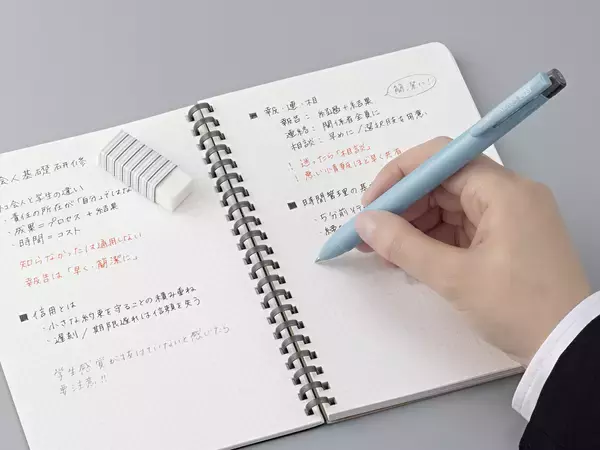 会人基礎研修
会人と学生の違い
・責任の所在が「自分」では
・成果=プロセス+結果
・時間=コスト
知らなかったは通用しない
報告は「早く・簡潔に」
■信用とは
・小さな約束を守ることの積み重ね
・遅刻/期限遅れは信頼を失う
学生感覚が抜けていないと感じたら
要注意!!
簡潔に!
■報・連・相
報告:結論+結果
連絡:関係者全員に
相談:早めに/選択肢を用意
!迷ったら「相談」
!悪い情報ほど早く共有
■時間管理の基
・5分前